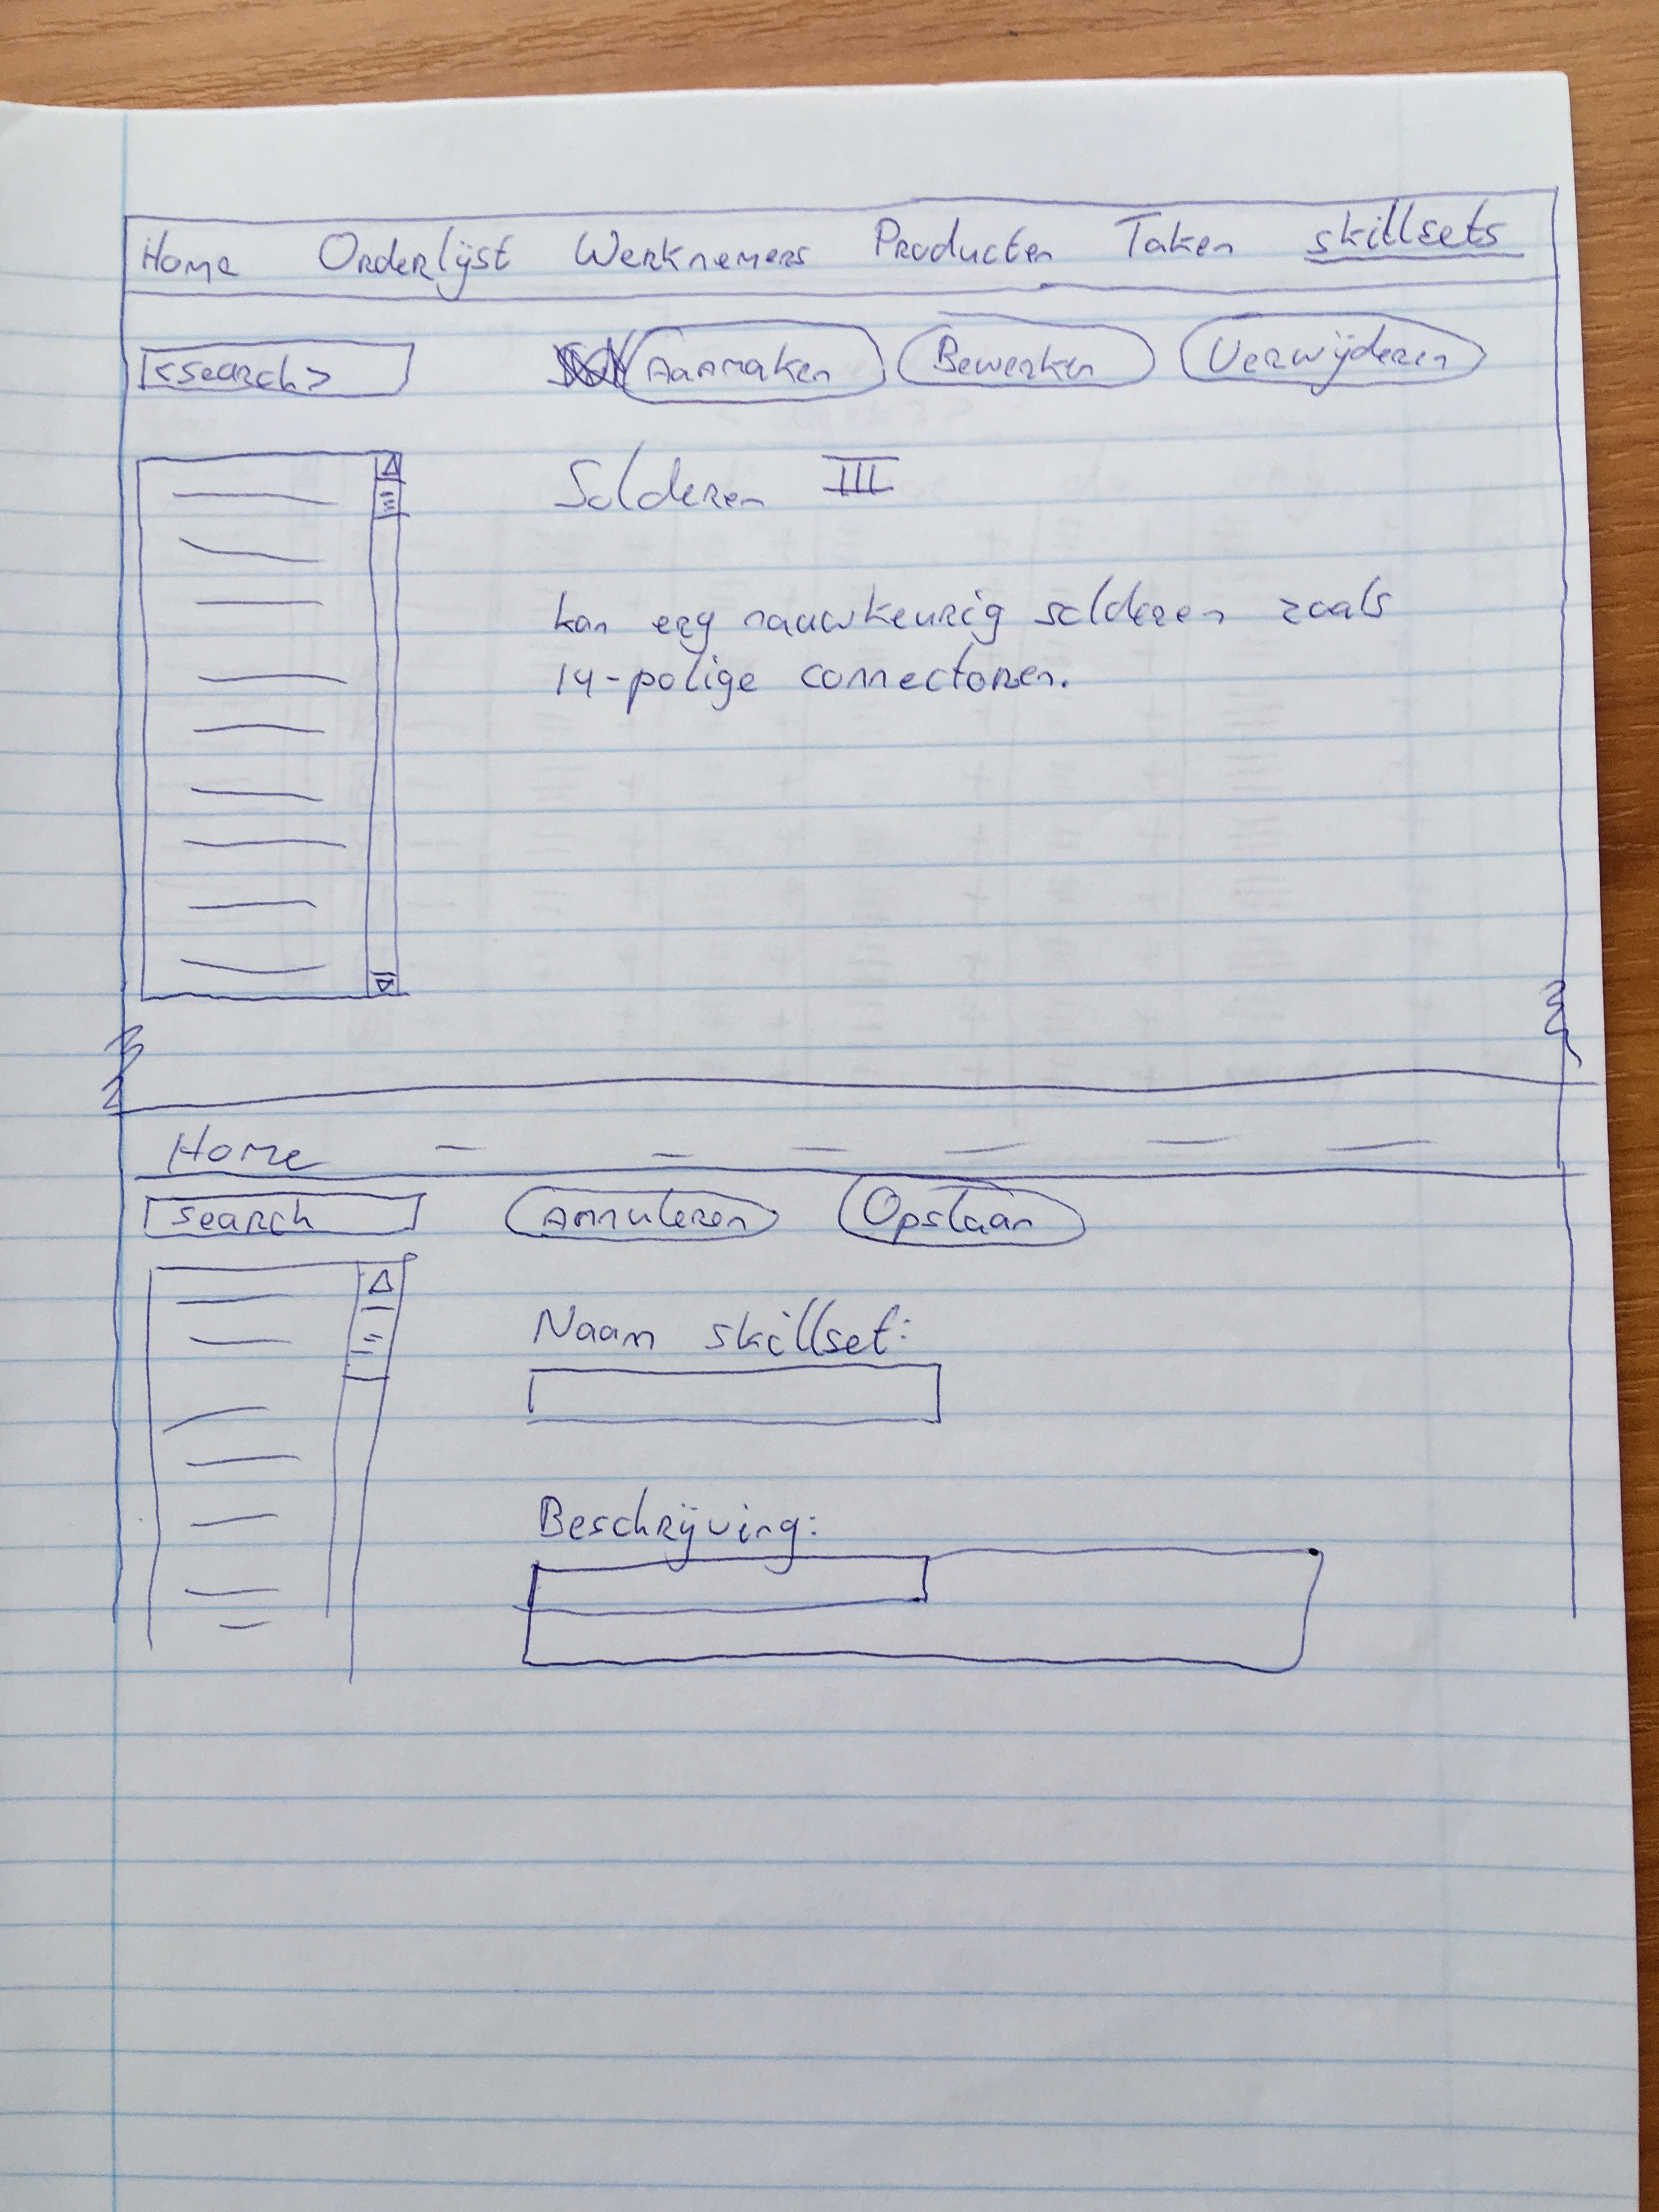 Home Orderlijst Werknemers Producten Taken skillsets
<search> Aanmaken Bewerken Verwijderen
Solderen III
kan erg nauwkeurig solderen zoals
14-polige connectoren.
Home
search Annuleren Opslaan
Naam skillset:
Beschrijving: